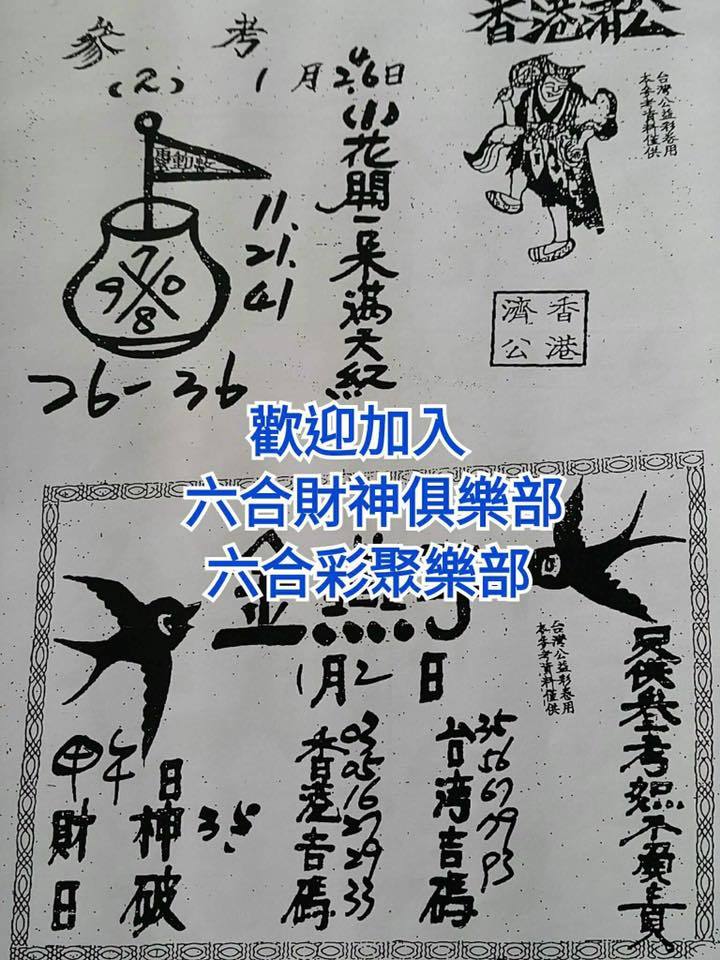 香港濟公
參考
(2) 1月26日
(1)花開一朵滿天紅
11.
21.
41
7
9 0
8
26-36
本參考資料僅供
台灣公益彩卷用
香港
濟公
歡迎加入
六合財神俱樂部
六合彩聚樂部
金燕子
1月2日
本參考資料僅供
台灣公益彩卷用
只供參考恕不負責
甲午日
財神 35.
日破
香港吉碼
03
05
16
27
29
33
台湾吉碼
35
56
67
79
93